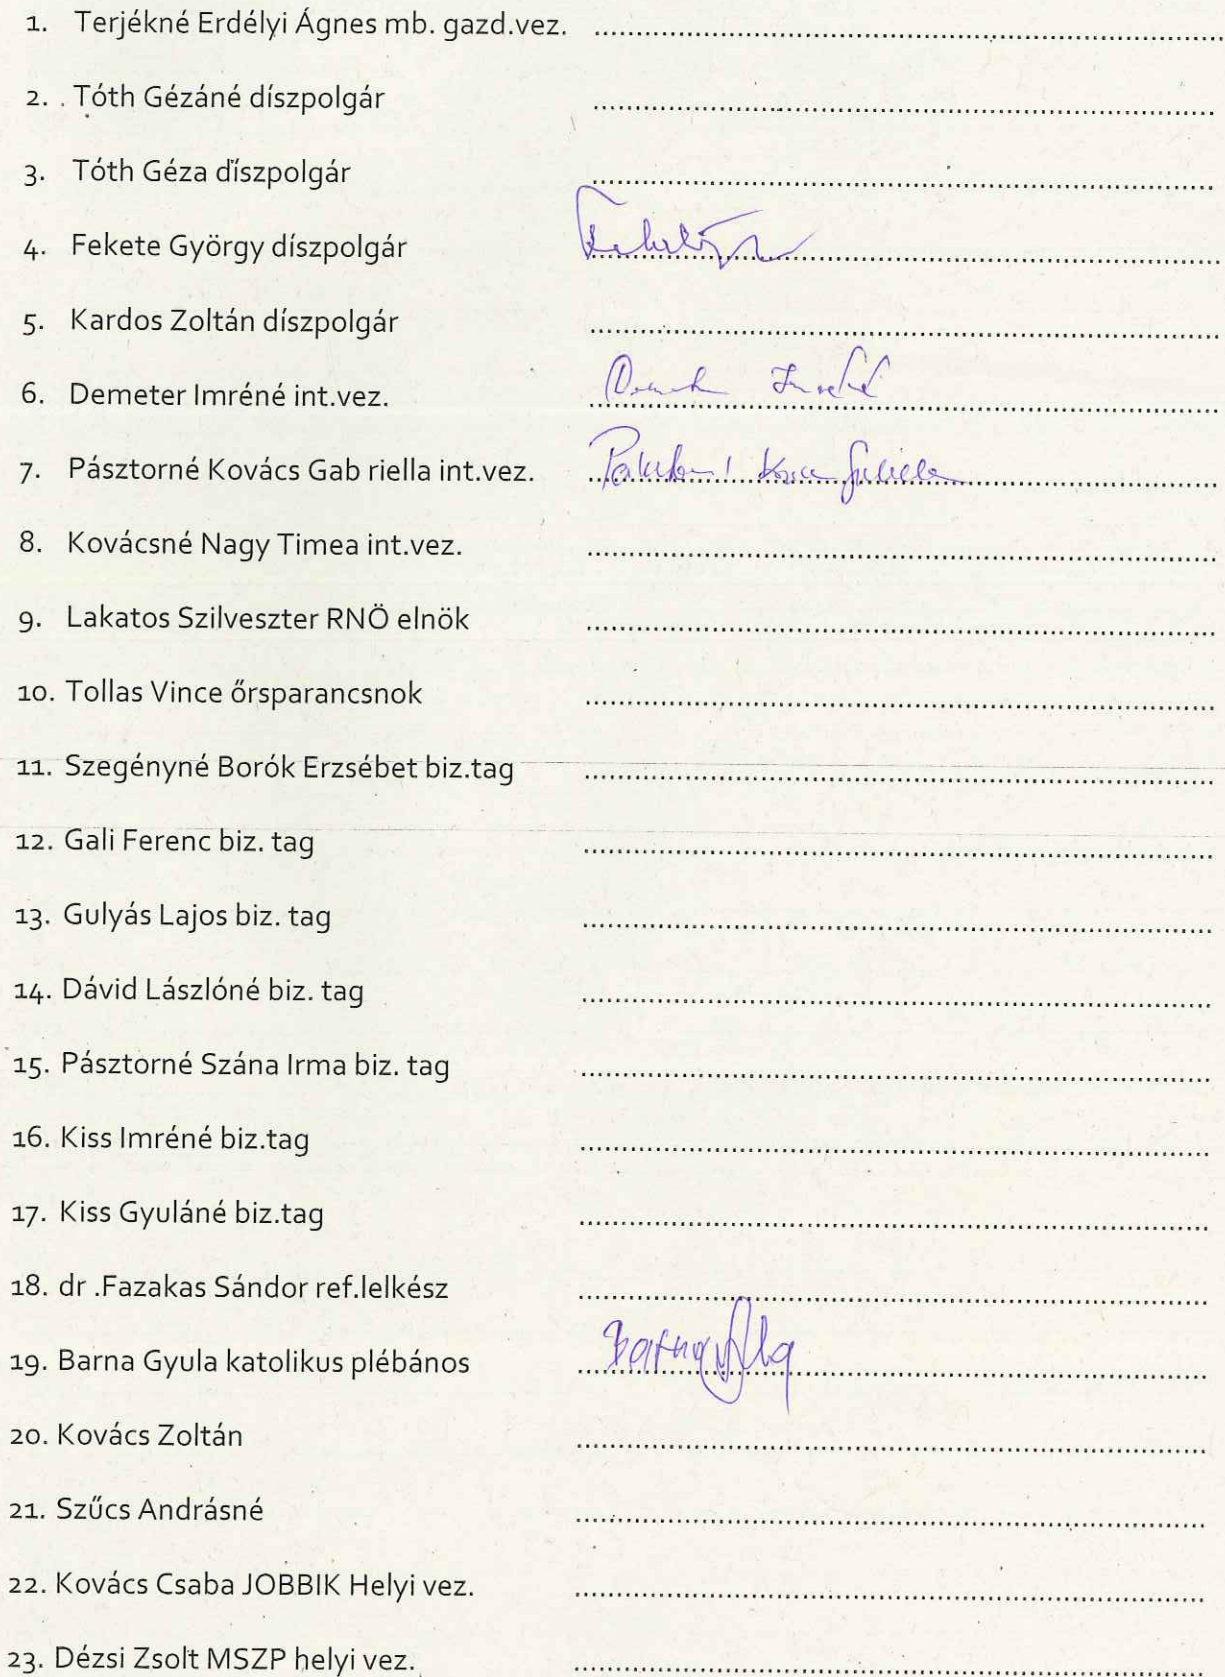 1. Terjékné Erdélyi Ágnes mb. gazd.vez. ........................
2. . Tóth Gézáné díszpolgár ........................
3. Tóth Géza díszpolgár ........................
4. Fekete György díszpolgár ........................
5. Kardos Zoltán díszpolgár ........................
6. Demeter Imréné int.vez. ........................
7. Pásztorné Kovács Gab riella int.vez. ........................
8. Kovácsné Nagy Timea int.vez. ........................
9. Lakatos Szilveszter RNÖ elnök ........................
10. Tollas Vince őrsparancsnok ........................
11. Szegényné Borók Erzsébet biz.tag ........................
12. Gali Ferenc biz. tag ........................
13. Gulyás Lajos biz. tag ........................
14. Dávid Lászlóné biz. tag ........................
15. Pásztorné Szána Irma biz. tag ........................
16. Kiss Imréné biz.tag ........................
17. Kiss Gyuláné biz.tag ........................
18. dr .Fazakas Sándor ref.lelkész ........................
19. Barna Gyula katolikus plébános Barna Gyula
20. Kovács Zoltán ........................
21. Szűcs Andrásné ........................
22. Kovács Csaba JOBBIK Helyi vez. ........................
23. Dézsi Zsolt MSZP helyi vez. ........................